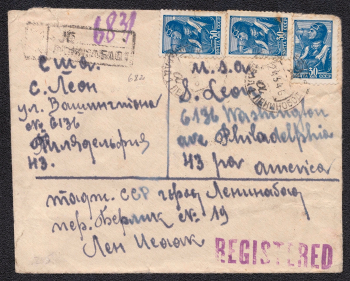 № 6831
США.
С. Леон
ул. Вашингтона
№ 6136
Филадельфия
43.
682
U.S.A
S. Leon
6136 Washington
ave. Philadelphia
43 par
america
Тадж. ССР город Ленинабад
пер. Ферлик № 19
Лен Исаак
REGISTERED
30
30
30